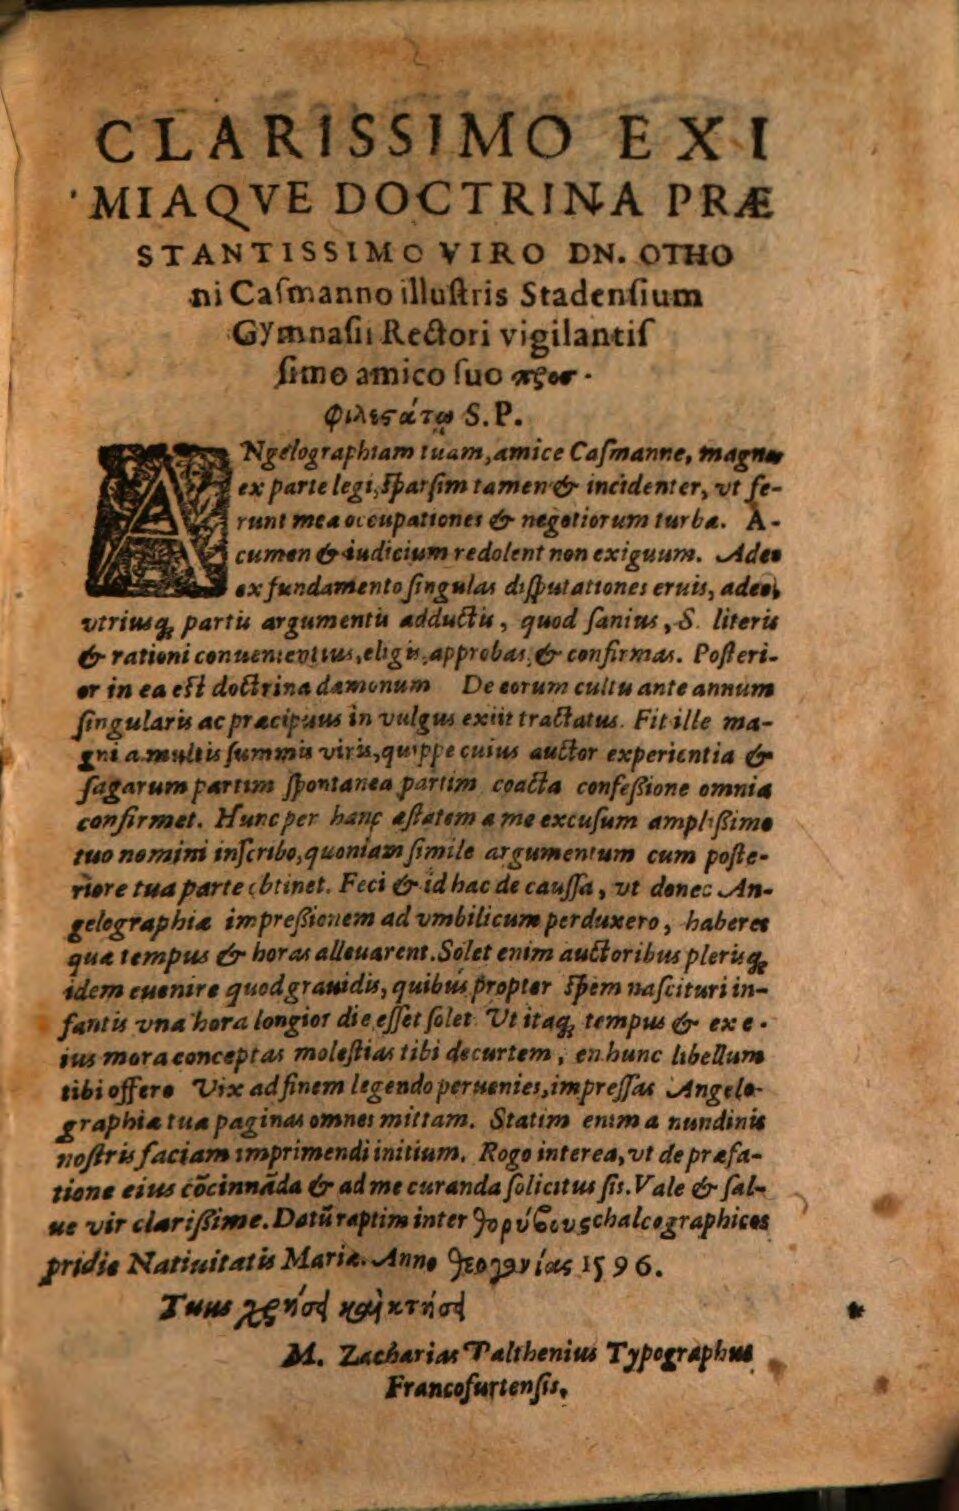 CLARISSIMO EXI
MIAQVE DOCTRINA PRÆ
STANTISSIMO VIRO DN. OTHO
ni Caſmanno illuſtris Stadenſium
Gymnaſii Rectori vigilantiſ
ſimo amico ſuo προσ-
φιλεστάτῳ S.P.
ANgelographiam tuam, amice Caſmanne, magna
ex parte legi, ſparſim tamen & incidenter, vt fe-
runt mea occupationes & negotiorum turba. A-
cumen & iudicium redolent non exiguum. Adeo
ex fundamento ſingulas diſputationes eruis, adeo,
vtriusq́; partis argumentis adductis, quod ſanius, S. literis
& rationi conuenientius, eligis, approbas, & confirmas. Poſteri-
or in ea eſt doctrina dæmonum De eorum cultu ante annum
ſingularis ac præcipuus in vulgus exiit tractatus. Fit ille ma-
gni a multis ſummis viris, quippe cuius auctor experientia &
ſagarum partim ſpontanea partim coacta confeßione omnia
confirmet. Hunc per hanc æſtatem a me excuſum ampliſſimo
tuo nomini inſcribo, quoniam ſimile argumentum cum poſte-
riore tua parte obtinet. Feci & id hac de cauſſa, vt donec An-
gelographiæ impreßionem ad vmbilicum perduxero, haberes
quæ tempus & horas alleuarent. Solet enim auctoribus plerisq́;
idem euenire quod grauidis, quibus propter ſpem naſcituri in-
fantis vna hora longior die eſſet ſolet. Ut itaq́; tempus & ex e-
ius mora conceptas moleſtias tibi decurtem, en hunc libellum
tibi offero Vix ad finem legendo peruenies, impreſſas Angelo-
graphiæ tuæ paginas omnes mittam. Statim enim a nundinis
noſtris faciam imprimendi initium. Rogo interea, vt de præfa-
tione eius cōcinnāda & ad me curanda ſolicitus ſis. Vale & ſal-
ue vir clarißime. Datū raptim inter θορύβους chalcographicos
pridie Natiuitatis Mariæ. Anno θεογονίας 1596.
Tuus χρήσει καὶ κτήσει
M. Zacharias Palthenius Typographus
Francofurtenſis.